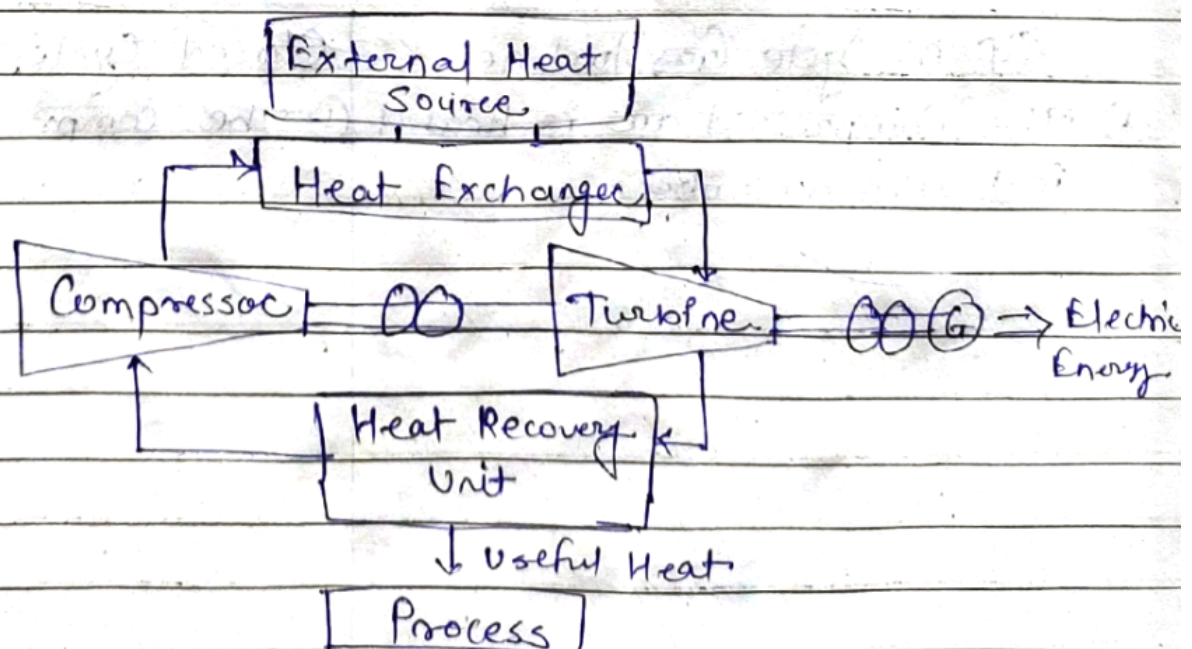 External Heat
Source
Heat Exchanger
Compressor
Turbine
G
Electric
Energy
Heat Recovery
Unit
Useful Heat
Process